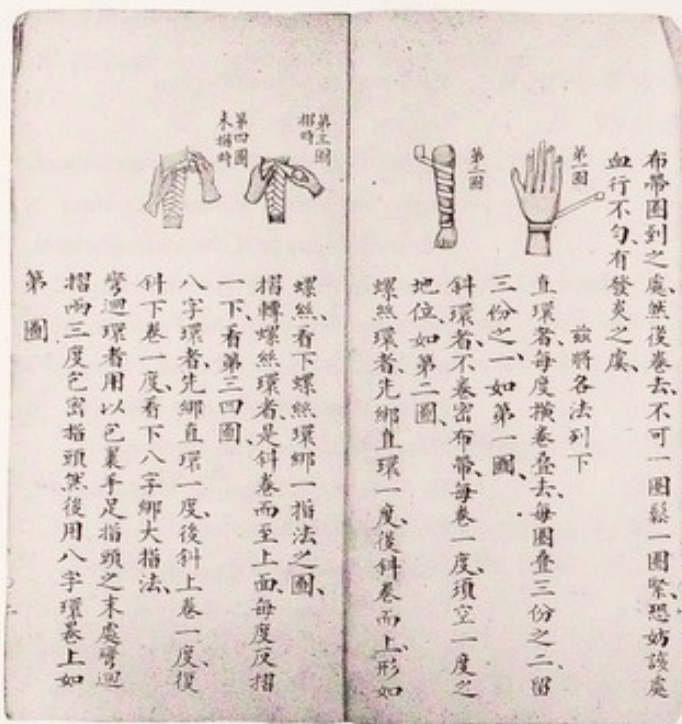 布帶圈到之處然後卷去、不可一圈鬆一圈緊、恐妨該處
血行不勻、有發炎之虞、
茲將各法列下
第一圖
直環者、每度橫卷叠去、每圈叠三份之二、留
三份之一、如第一圖、
第二圖
斜環者、不卷密布帶、每卷一度、須空一度之
地位、如第二圖、
螺絲環者、先綁直環一度、後斜卷而上、形如
螺絲、看下螺絲環綁一指法之圖、
第三圖
摺時
摺轉螺絲環者、是斜卷而至上面、每度反摺
一下、看第三四圖、
第四圖
未摺時
八字環者、先綁直環一度、後斜上卷一度、復
斜下卷一度、看下八字綁大指法、
彎迴環者用以包裹手足指頭之末處彎迴
摺兩三度包密指頭然後用八字環卷上如
第 圖